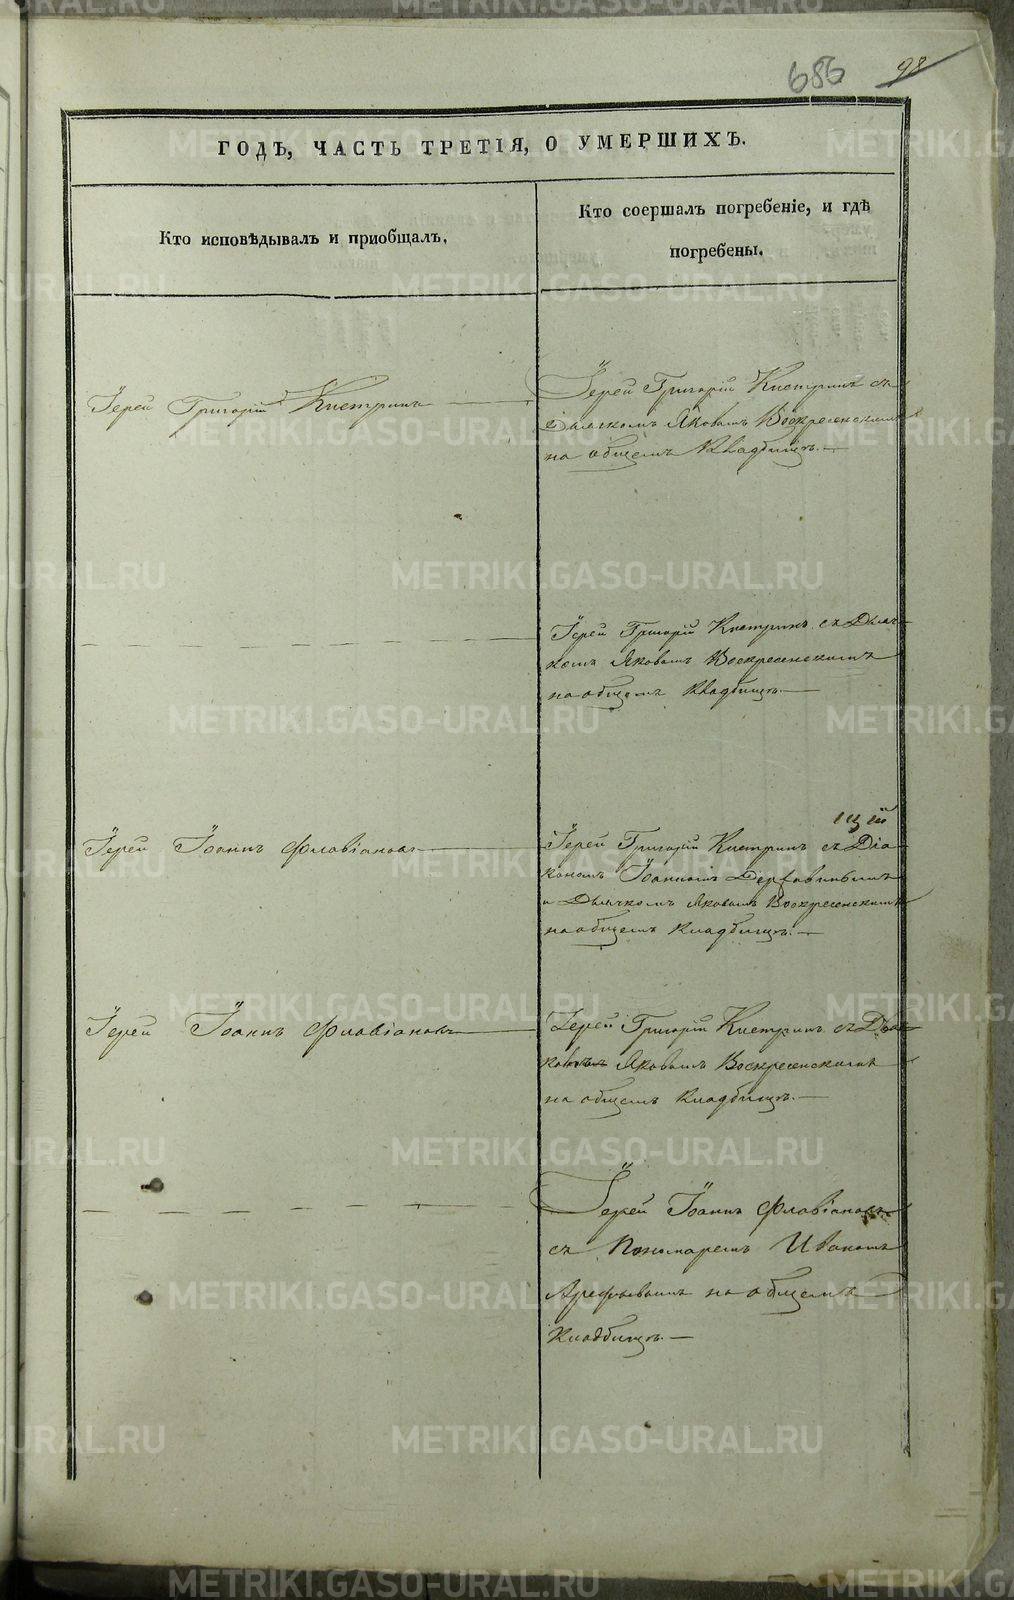 686 98
ГОДЪ, ЧАСТЬ ТРЕТІЯ, О УМЕРШИХЪ.
Кто исповѣдывалъ и приобщалъ.
Кто соершалъ погребеніе, и гдѣ
погребены.
Іерей Григорій Кистринъ
Іерей Григорій Кистринъ съ
Дьячкомъ Яковомъ Воскресенскимъ
на общемъ Кладбищѣ.
Іерей Григорій Кистринъ съ Дьяч-
комъ Яковомъ Воскресенскимъ
на общемъ Кладбищѣ.
Іерей Іоаннъ Флавіановъ
Іерей Григорій Кистринъ съ Діа-
кономъ Іоанномъ
и Дьячкомъ Яковомъ Воскресенскимъ
на общемъ Кладбищѣ.
Іерей Іоаннъ Флавіановъ
Іерей Григорій Кистринъ съ
Яковомъ Воскресенскимъ
на общемъ Кладбищѣ.
Іерей Іоаннъ Флавіановъ
съ Пономаремъ Иваномъ
Арефьевымъ на общемъ
Кладбищѣ.
METRIKI.GASO-URAL.RU